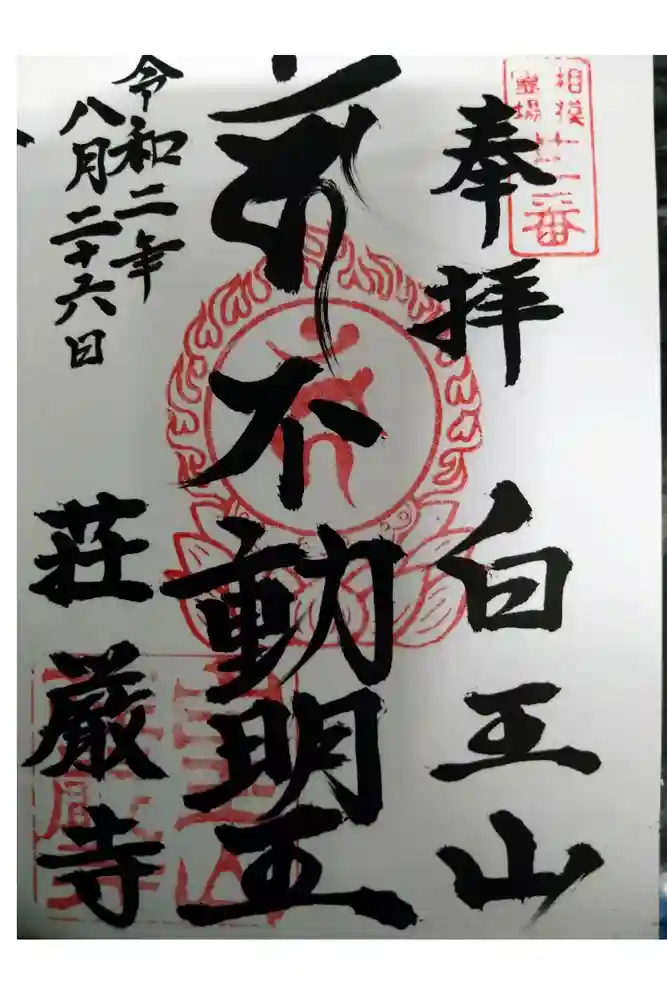 相模
霊場
廿一番
奉拝
白王山
不動明王
令和二年
八月二十六日
荘厳寺